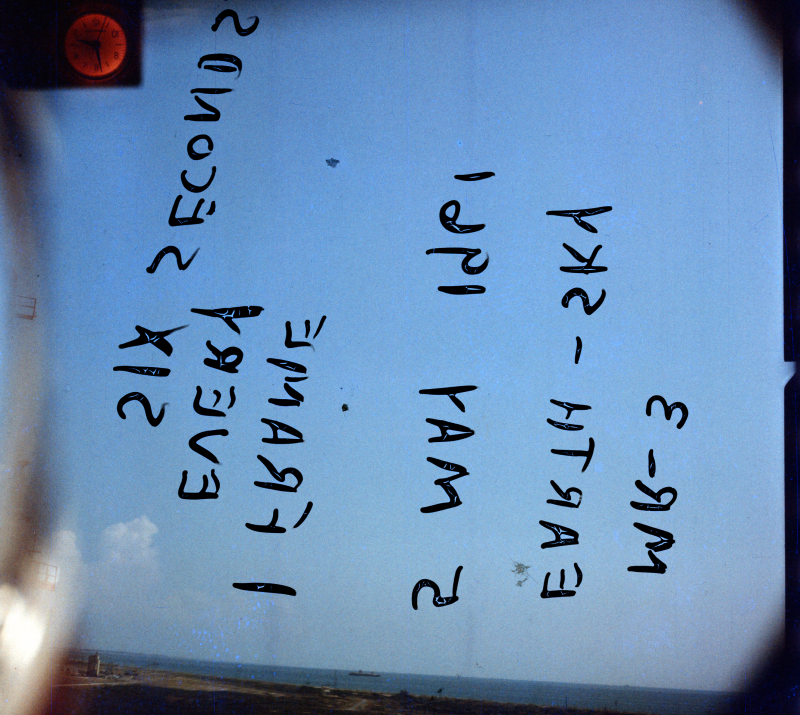 MR-3
EARTH-SKY
5 MAY 1961
1 FRAME
EVERY
SIX SECONDS